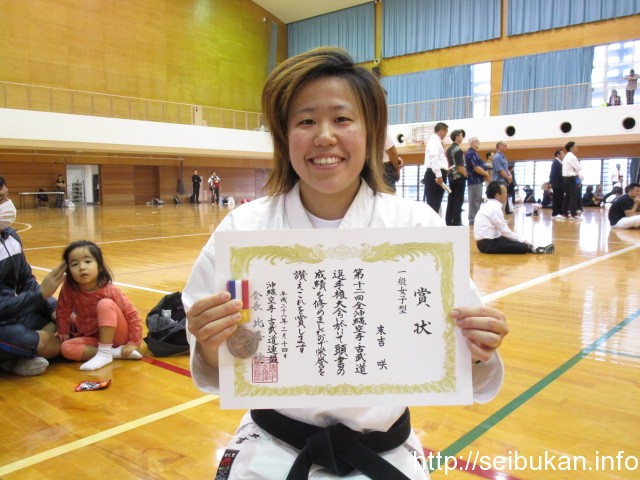 賞状
一般女子型
末吉 咲
第十二回全沖縄空手古武道
選手権大会に於いて頭書の
成績を修めましたので栄誉を
讃えこれを賞します
平成二十八年二月十四日
沖縄空手・古武道連盟
会長
http://seibukan.info